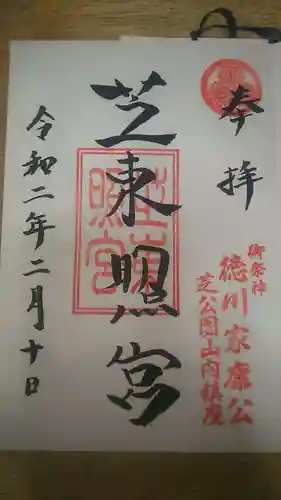 奉拝
御祭神
徳川家康公
芝公園山内鎮座
芝東照宮
芝東照宮
令和二年二月十日